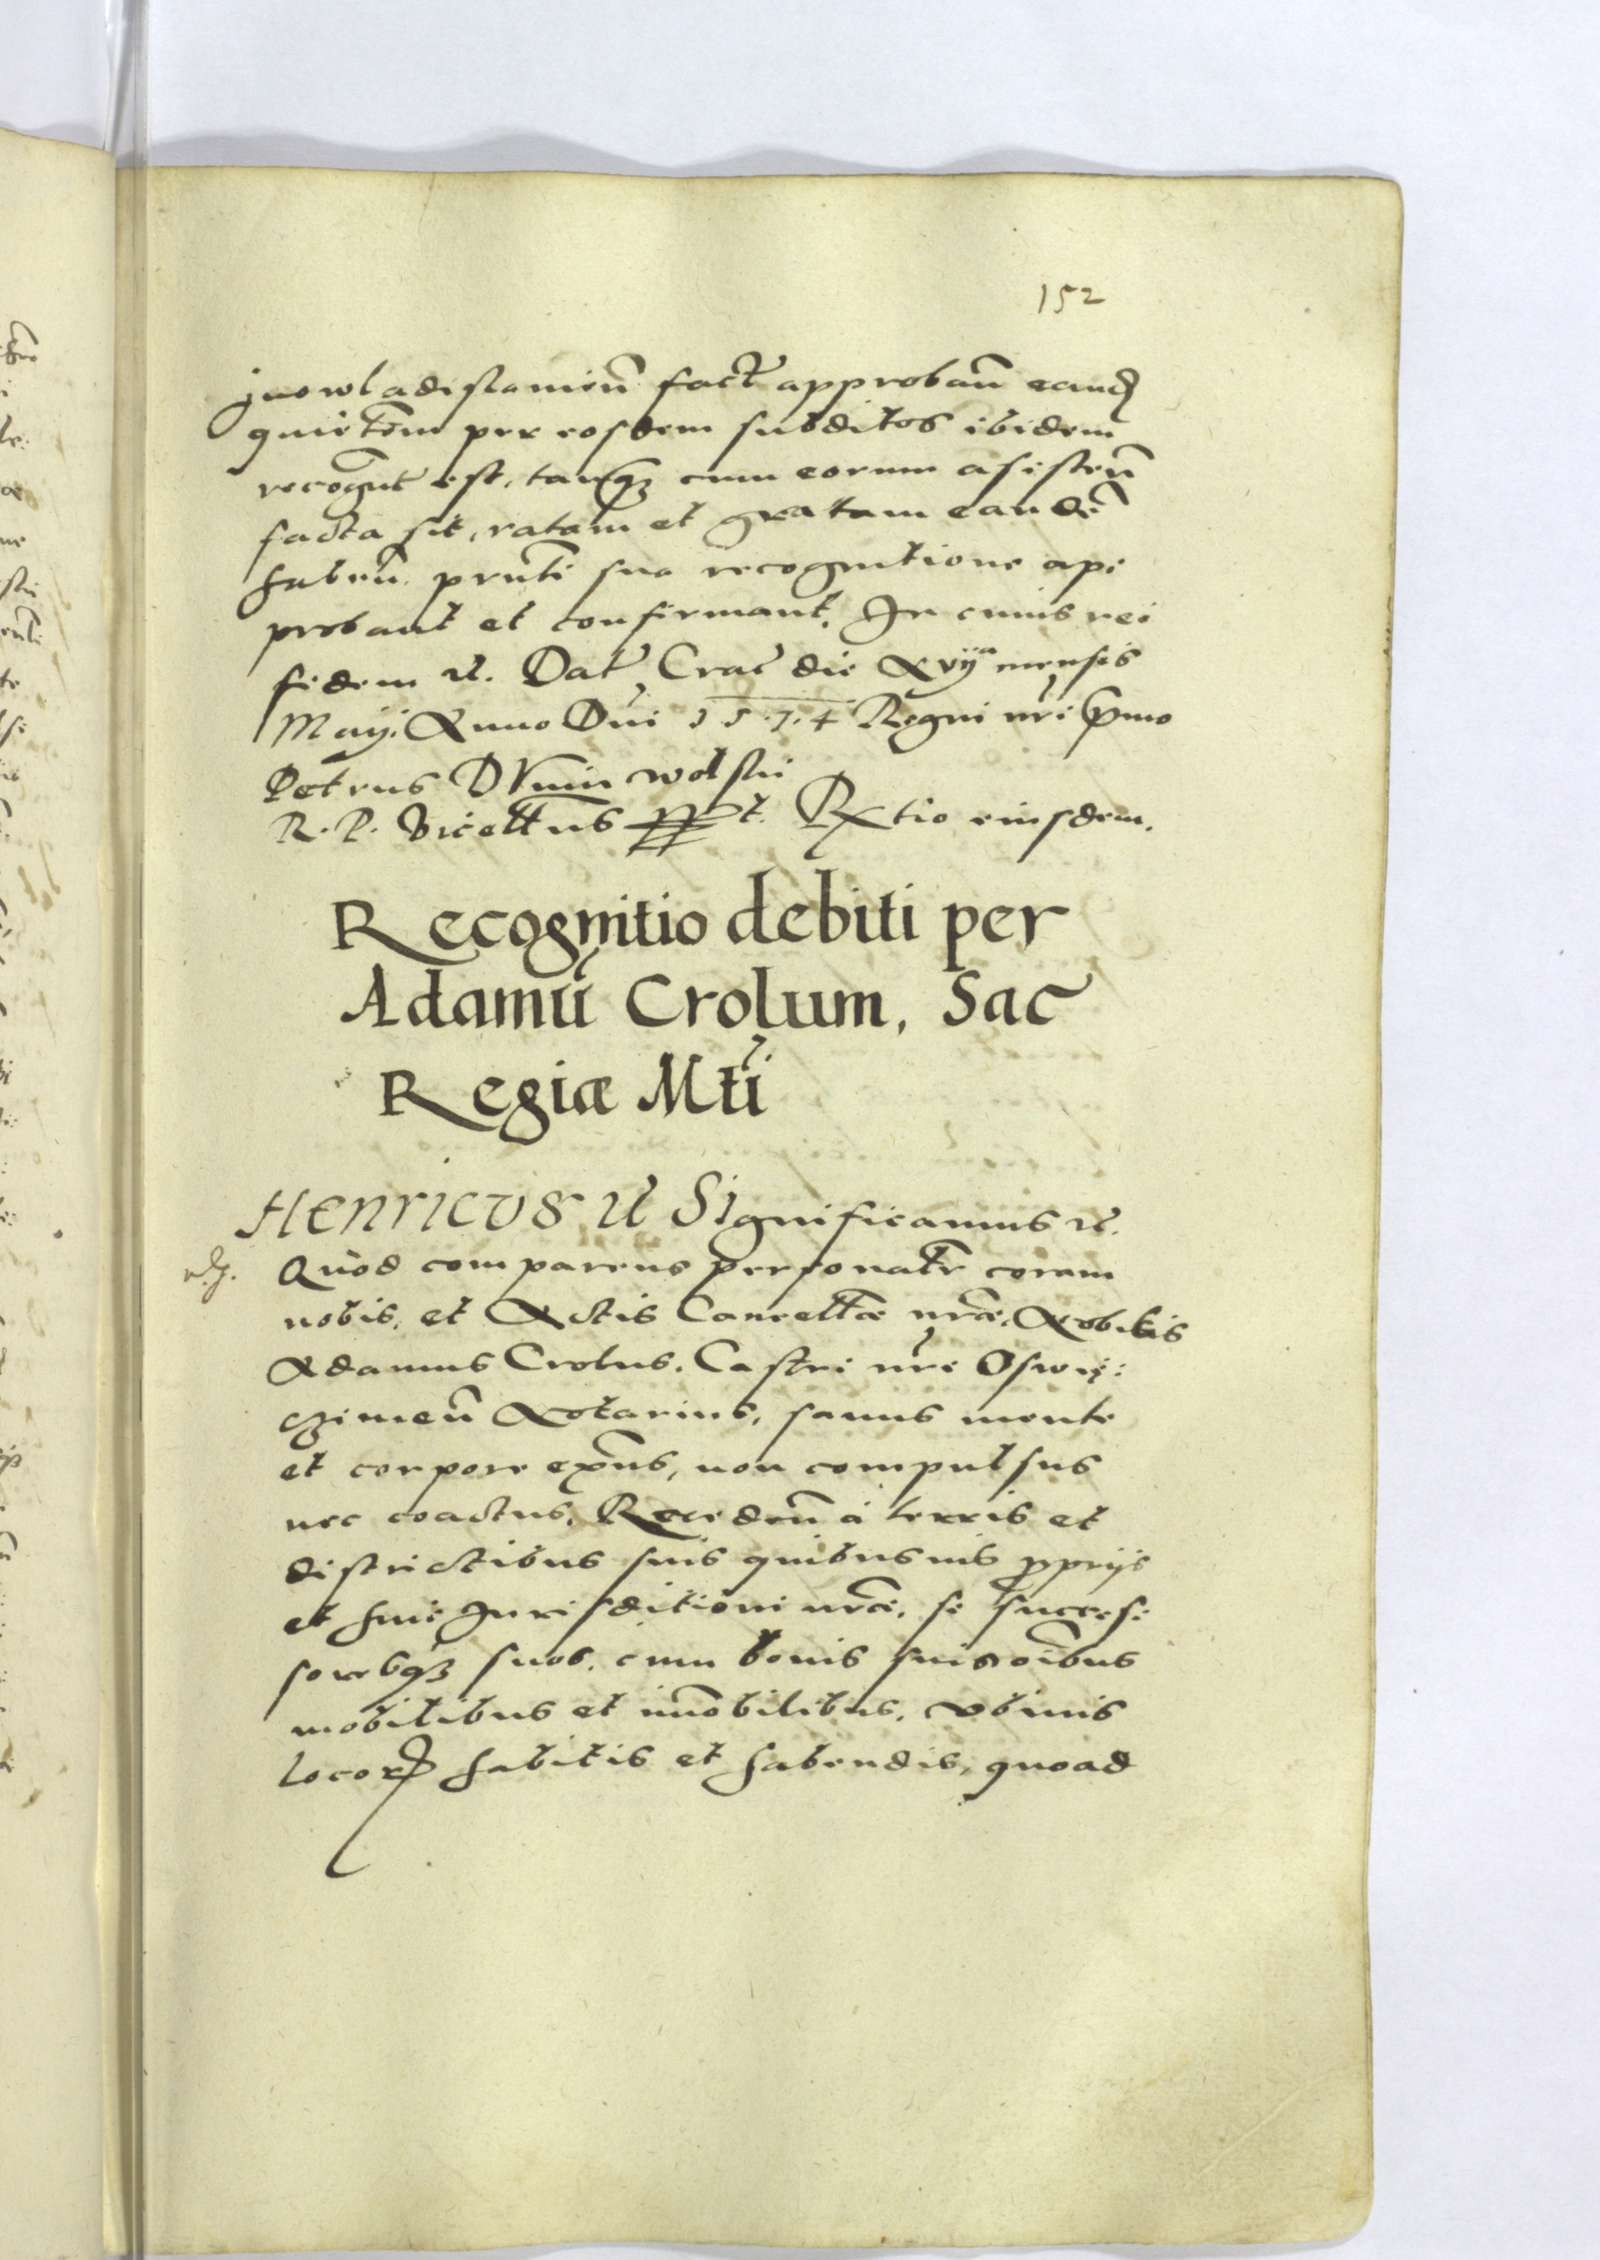 152
Juowladislamien̄ fact̄ approban̄ eand̄
quiet̄om̄ per eosdem subditos ibidem
recognit̄ est, tanq̄ȝ cum eorum asisten̄
facta sit, ratam et gratam eandē
haben̄ pn̄ti sua recognitione ap:
probant et confirmant. In cuius rei
fidem ꝛc̄. Dat̄ Crac̄ die xvijᵃ mensis
Maij. Anno Dn̄i 1574 Regni nr̄i p̄mo
Petrus DVnin wolski
R. P. Vicecll̄rius ſſt. Rx̄tio eiusdem.
Recognitio debiti per
Adamū Crolum, Sac̄
Regiæ Mt̄i
Henricus ꝛc̄ Significamus ꝛc̄.
Quòd comparens personalr̄ coram
nobis, et Actis Cancell̄æ nr̄æ, Nobilis
Adamus Crolus. Castri nr̄i Oswię:
czimen̄ Notarius, sanus mente
et corpore ex̄ns, non compulsus
nec coactus, Receden̄ à terris et
districtibus suis quibusuis p̱prijs
et huic Jurisditioni nr̄æ, se succes:
soresq̄ȝ suos, cum bonis suis oībus
mobilibus et im̄obilibus, vbiuis
locorꝝ habitis et habendis, quoad